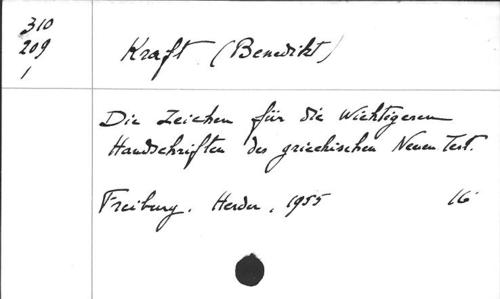 310
209
1
Kraft (Benedikt)
Die Zeichen für die Wichtigeren
Handschriften des griechischen Neuen Test.
Freiburg. Herder, 1955 16